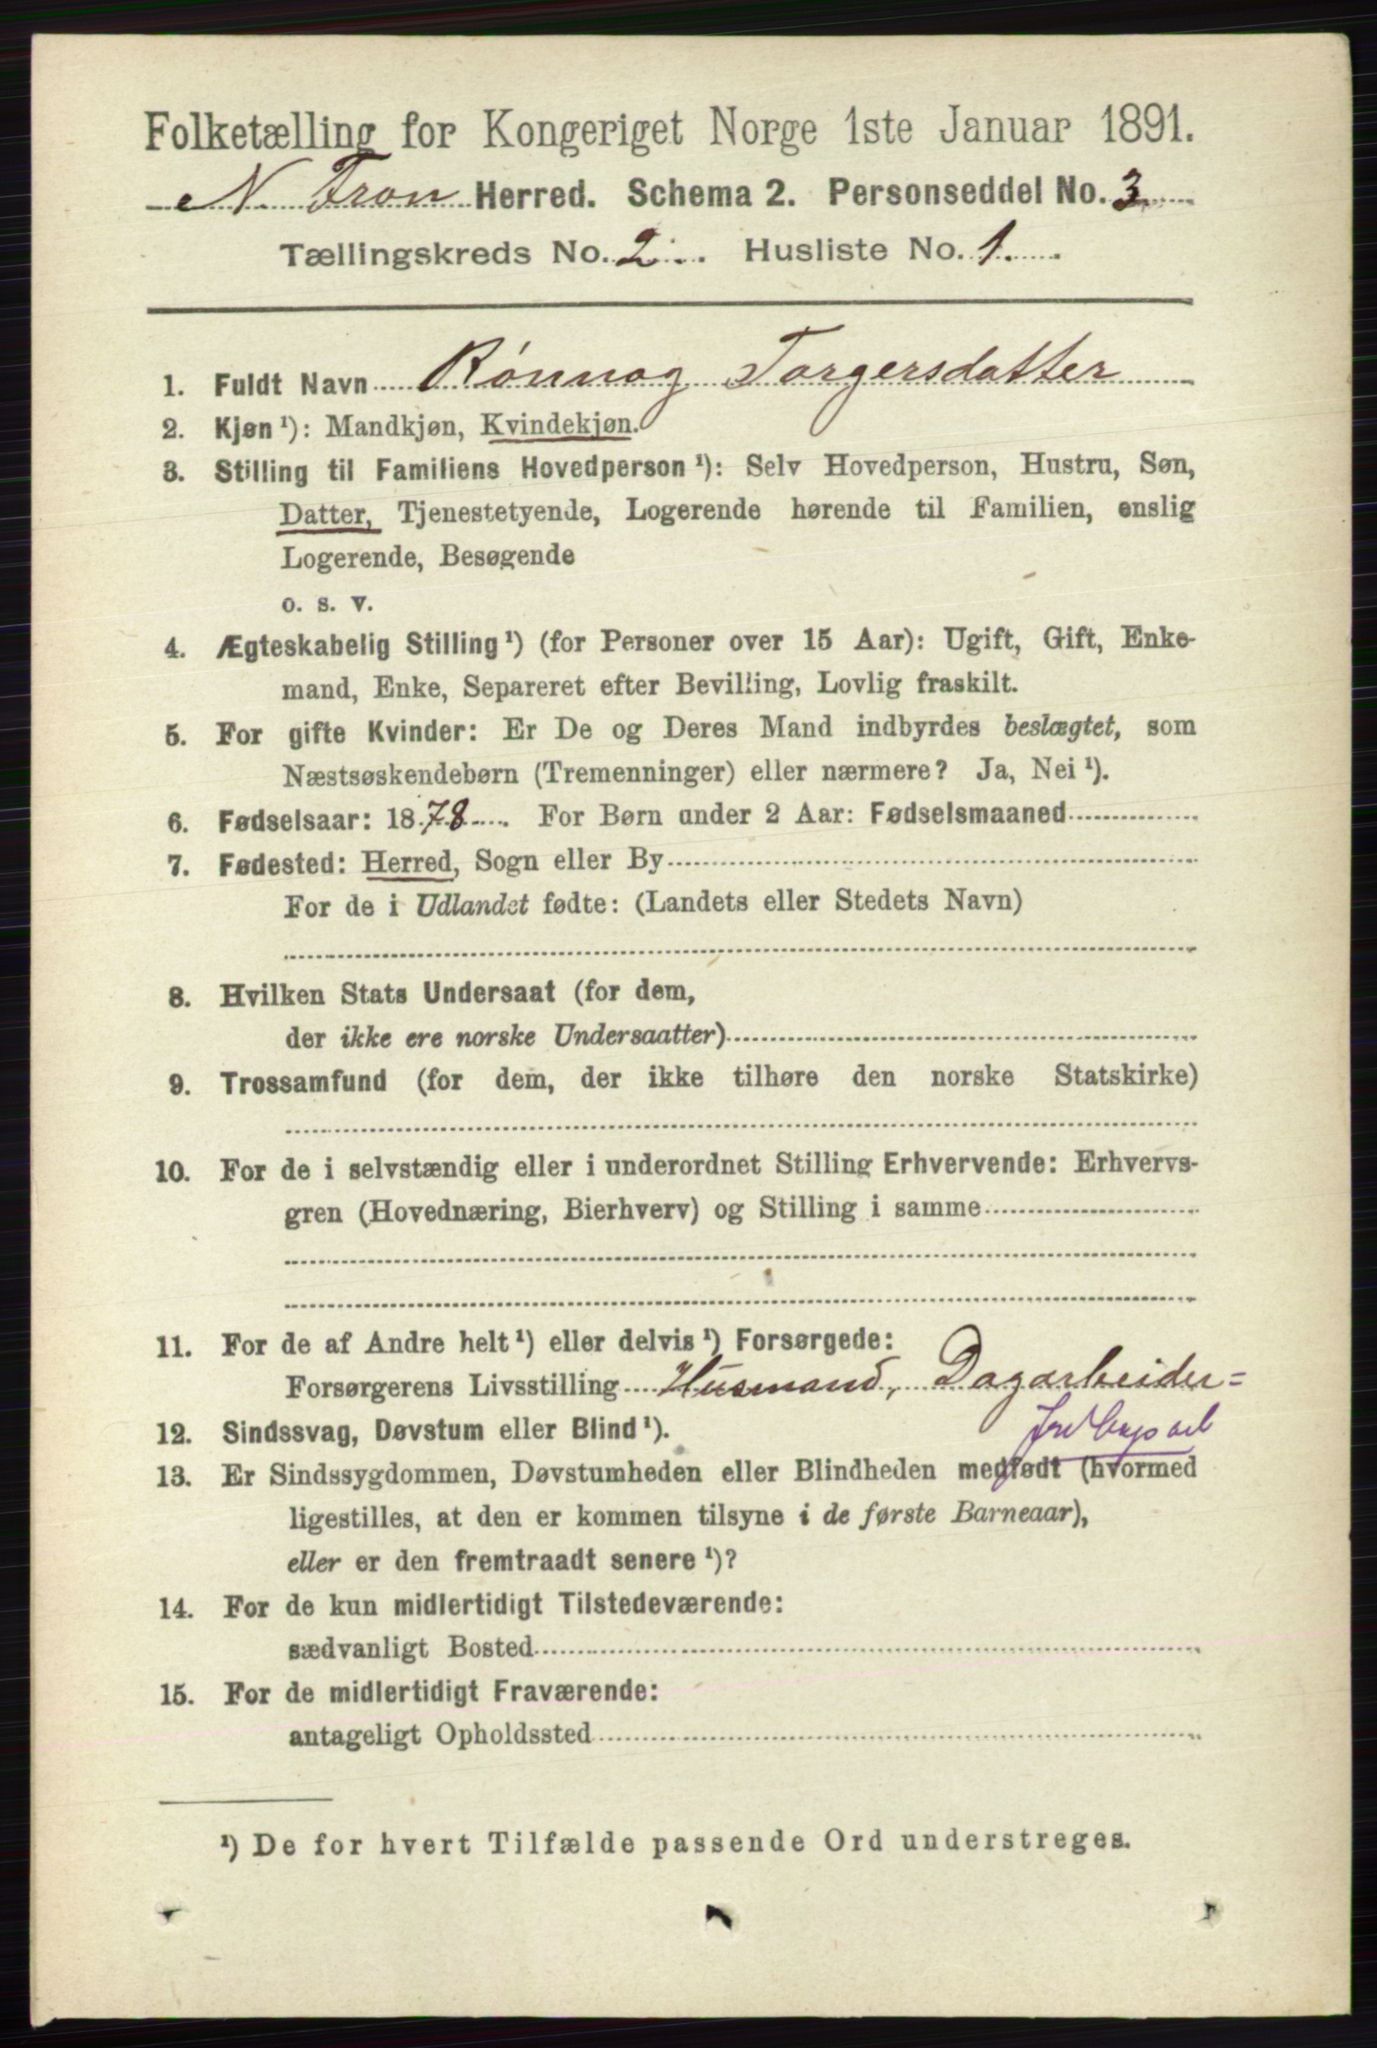 Folketælling for Kongeriget Norge 1ste Januar 1891.
N. Fron Herred. Schema 2. Personseddel No. 3
Tællingskreds No. 2. Husliste No. 1.
1. Fuldt Navn Rönnog Torgersdatter
2. Kjøn¹): Mandkjøn, Kvindekjøn.
3. Stilling til Familiens Hovedperson¹): Selv Hovedperson, Hustru, Søn,
Datter, Tjenestetyende, Logerende hørende til Familien, enslig
Logerende, Besøgende
o. s. v.
4. Ægteskabelig Stilling¹) (for Personer over 15 Aar): Ugift, Gift, Enke-
mand, Enke, Separeret efter Bevilling, Lovlig fraskilt.
5. For gifte Kvinder: Er De og Deres Mand indbyrdes beslægtet, som
Næstsøskendebørn (Tremenninger) eller nærmere? Ja, Nei¹).
6. Fødselsaar: 1878. For Børn under 2 Aar: Fødselsmaaned
7. Fødested: Herred, Sogn eller By
For de i Udlandet fødte: (Landets eller Stedets Navn)
8. Hvilken Stats Undersaat (for dem,
der ikke ere norske Undersaatter)
9. Trossamfund (for dem, der ikke tilhøre den norske Statskirke)
10. For de i selvstændig eller i underordnet Stilling Erhvervende: Erhvervs-
gren (Hovednæring, Bierhverv) og Stilling i samme
11. For de af Andre helt¹) eller delvis¹) Forsørgede:
Forsørgerens Livsstilling Husmand, Dagarbeider=
12. Sindssvag, Døvstum eller Blind¹).
13. Er Sindssygdommen, Døvstumheden eller Blindheden medfødt (hvormed
ligestilles, at den er kommen tilsyne i de første Barneaar),
eller er den fremtraadt senere¹)?
14. For de kun midlertidigt Tilstedeværende:
sædvanligt Bosted
15. For de midlertidigt Fraværende:
antageligt Opholdssted
¹) De for hvert Tilfælde passende Ord understreges.